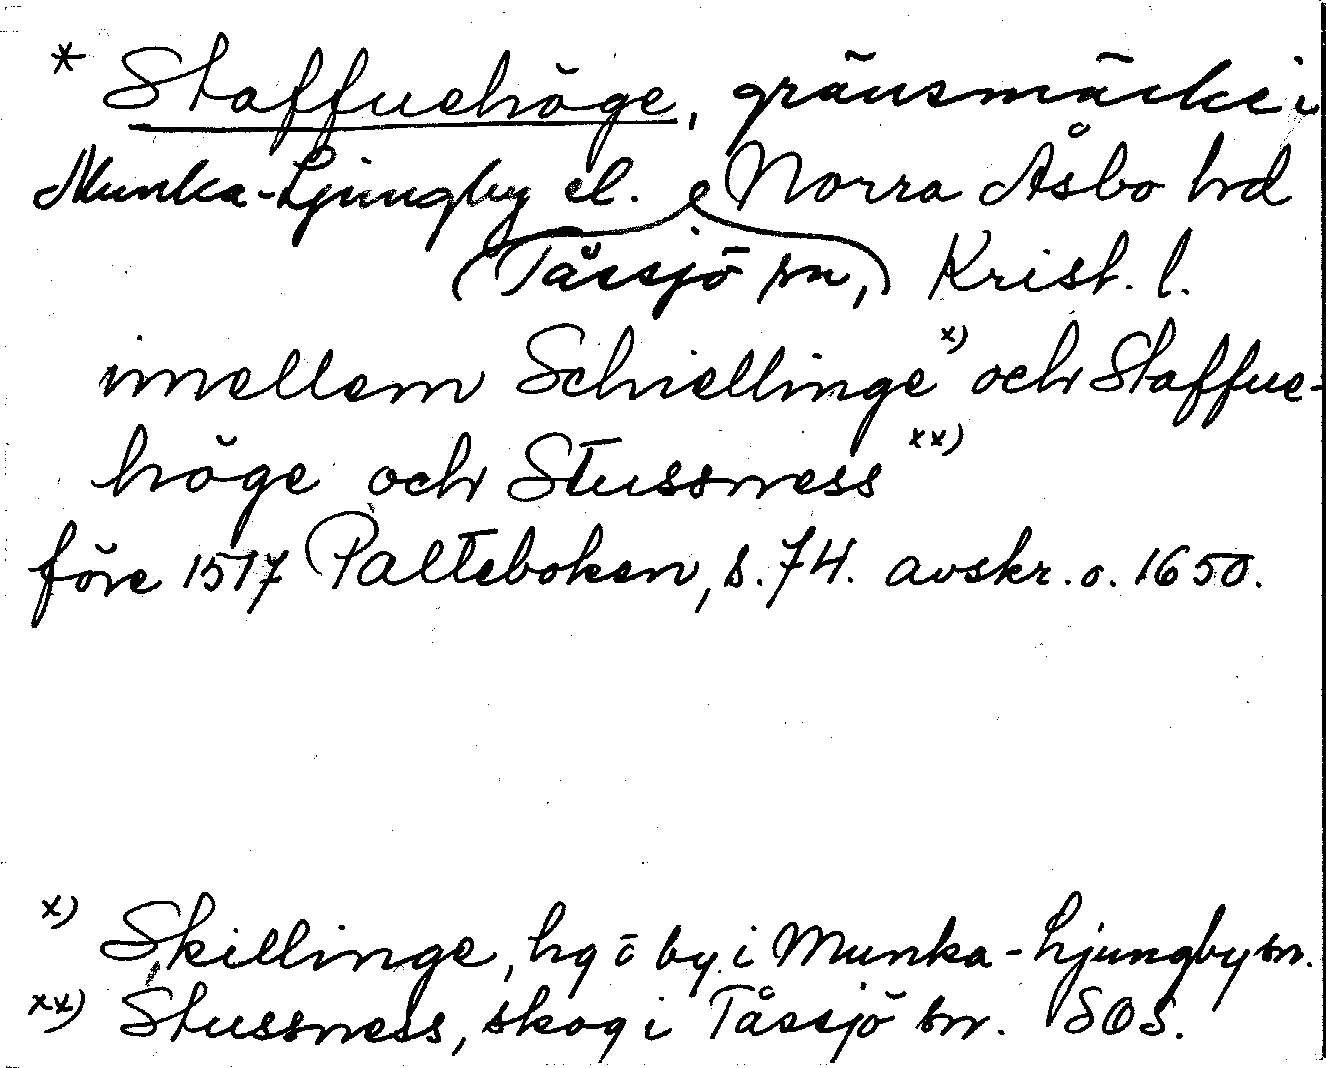 * Staffuehöge, gränsmärke i
Munka-Ljungby el. Norra Åsbo hd
(Tåssjö sn,) Krist. l.
imellem Schiellinge x) och Staffue-
höge och Stussness xx)
före 1517 Palteboken, s. 74. avskr. o. 1650.
x) Skillinge, hg o by i Munka-Ljungby sn.
xx) Stussness, skog i Tåssjö sn. SOS.